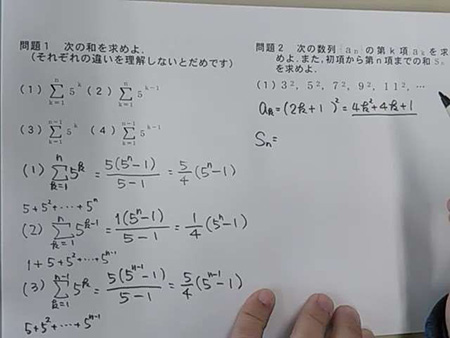 問題1 次の和を求めよ.
(それぞれの違いを理解しないとだめです)
(1) \sum_{k=1}^{n} 5^k (2) \sum_{k=1}^{n} 5^{k-1}
(3) \sum_{k=1}^{n-1} 5^k (4) \sum_{k=1}^{n-1} 5^{k-1}
(1) \sum_{k=1}^{n} 5^k = \frac{5(5^n-1)}{5-1} = \frac{5}{4}(5^n-1)
5+5^2+⋯+5^n
(2) \sum_{k=1}^{n} 5^{k-1} = \frac{1(5^n-1)}{5-1} = \frac{1}{4}(5^n-1)
1+5+5^2+⋯+5^{n-1}
(3) \sum_{k=1}^{n-1} 5^k = \frac{5(5^{n-1}-1)}{5-1} = \frac{5}{4}(5^{n-1}-1)
5+5^2+⋯+5^{n-1}
問題2 次の数列{a_n}の第k項a_kを求
めよ.また,初項から第n項までの和S_n
を求めよ.
(1) 3^2, 5^2, 7^2, 9^2, 11^2, ⋯
a_k=(2k+1)^2=4k^2+4k+1
S_n=